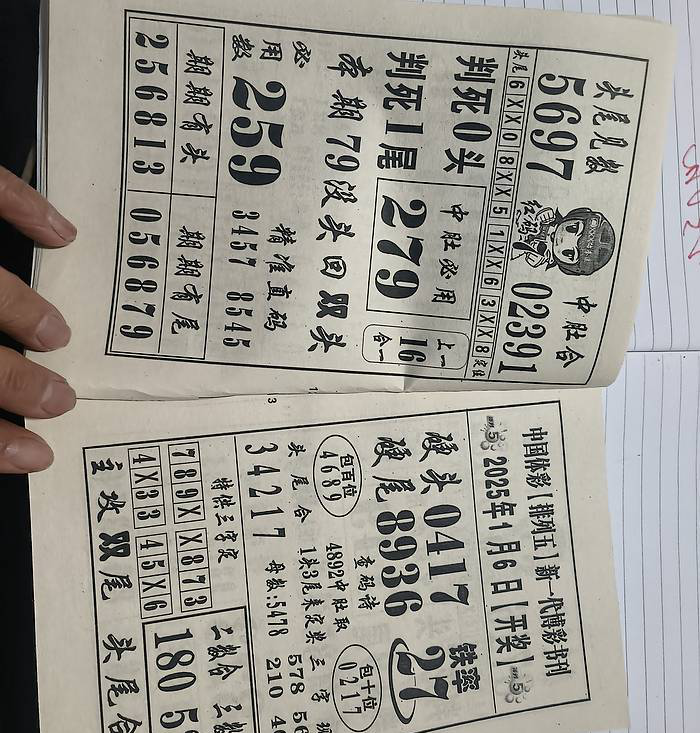 头尾见数
5697
中肚合
02391
红码
头尾 6XX0 8XX5 1XX6 3XX8 定位
判死0头
判死1尾
中肚必用
279
上一
16
合一
本期79没头回双头
必用数
259
精准直码
3457 8545
期期有头
256813
期期有尾
056879
中国体彩【排列五】新一代博彩书刊
排列5 2025年1月6日【开奖】 排列5
硬头0417
硬尾8936
铁率
27
查码诗
包百位
4689
4892中肚取
1头3尾来获奖
包十位
0217
头尾合
34217
母数:5478
三字
578
210
特供三字定
789X X873
4X33 45X6
主攻双尾
二数合
180
三数
头尾合
3